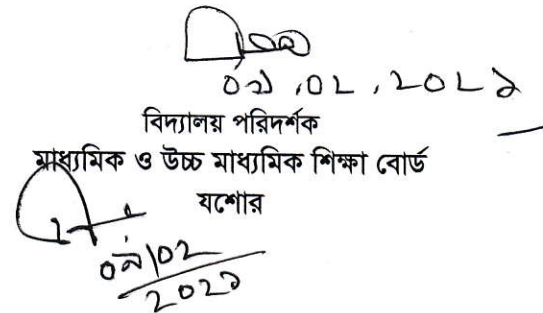 ০৯.০২.২০২১
বিদ্যালয় পরিদর্শক
মাধ্যমিক ও উচ্চ মাধ্যমিক শিক্ষা বোর্ড
যশোর
০৯/০২
২০২১